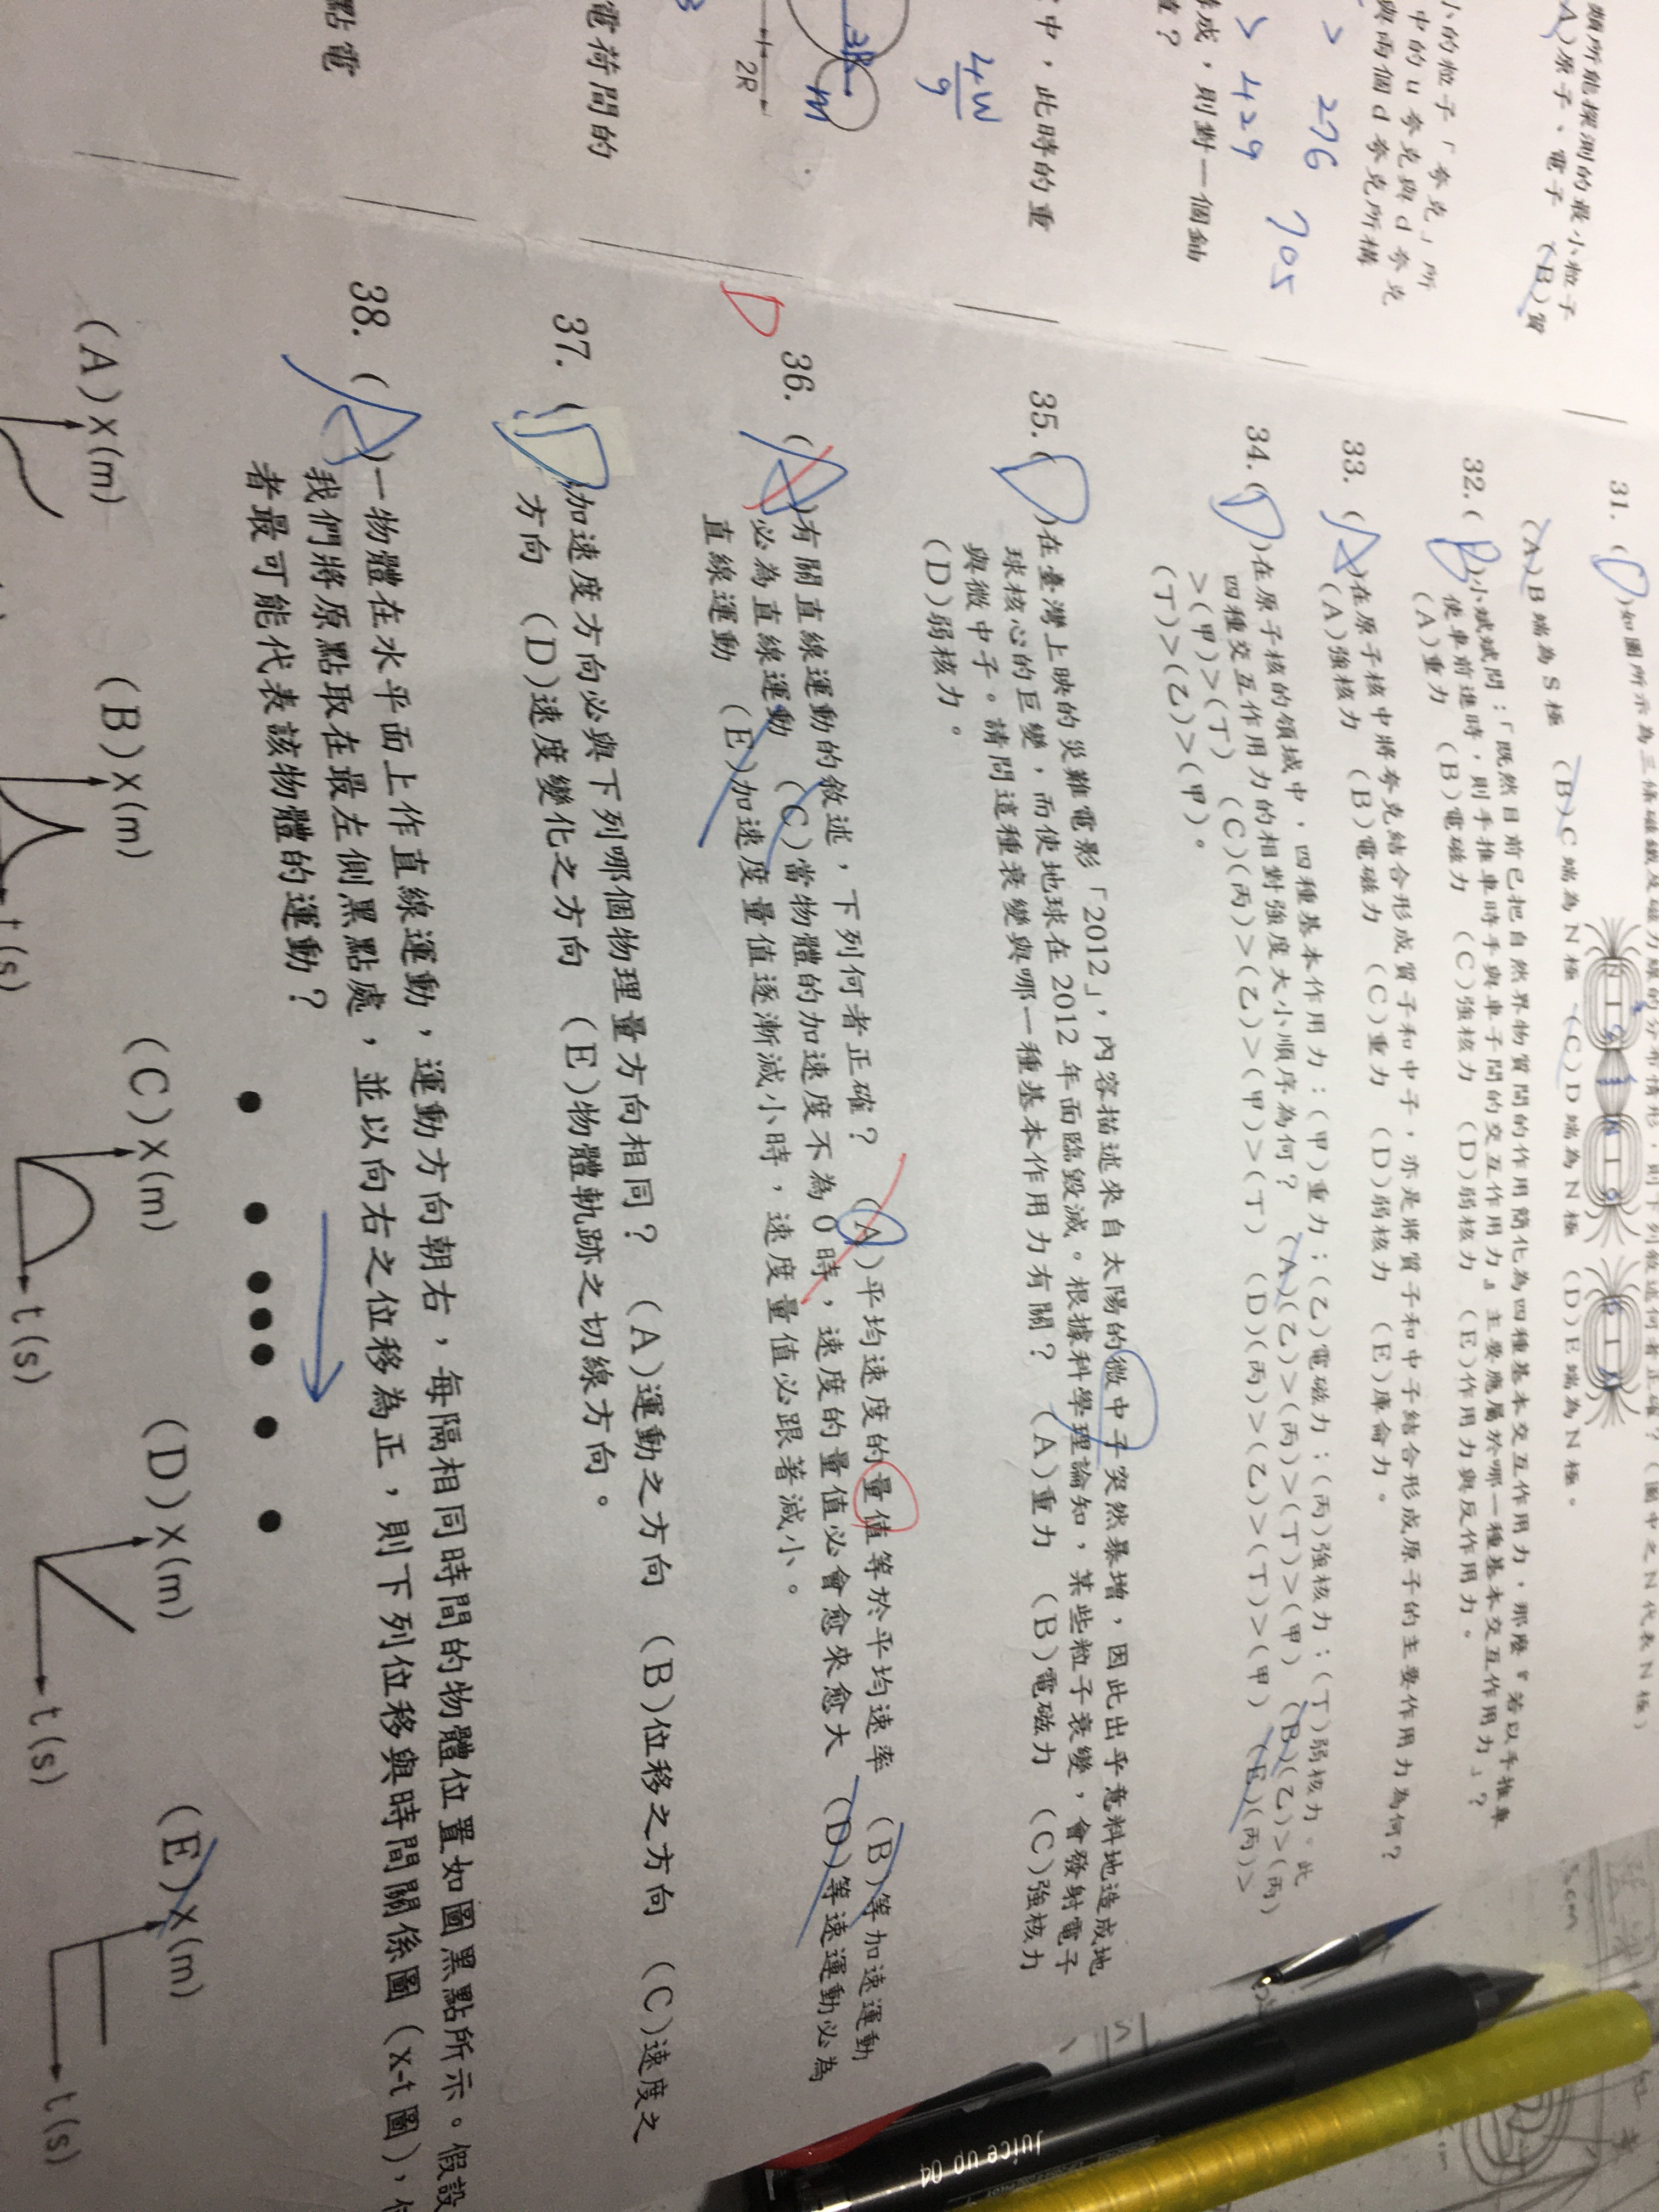 類所能探測的最小粒子
(A)原子、電子 (B)質
小的粒子「夸克」所
中的 u 夸克與 d 夸克
與兩個 d 夸克所構
> 276
> 429 705
構成，則對一個鈾
？
中，此時的重
4W
9
3R
m
2R
電荷間的
點電
31. (D)如圖所示為三條磁鐵及磁力線的分布情形，則下列敘述何者正確？(圖中之 N 代表 N 極)
N S N S S N
(A)B 端為 S 極 (B)C 端為 N 極 (C)D 端為 N 極 (D)E 端為 N 極。
32. (B)小斌斌問：「既然目前已把自然界物質間的作用簡化為四種基本交互作用力，那麼『若以手推車
使車前進時，則手推車時手與車子間的交互作用力』主要應屬於哪一種基本交互作用力」？
(A)重力 (B)電磁力 (C)強核力 (D)弱核力 (E)作用力與反作用力。
33. (A)在原子核中將夸克結合形成質子和中子，亦是將質子和中子結合形成原子的主要作用力為何？
(A)強核力 (B)電磁力 (C)重力 (D)弱核力 (E)庫侖力。
34. (D)在原子核的領域中，四種基本作用力：(甲)重力；(乙)電磁力；(丙)強核力；(丁)弱核力。此
四種交互作用力的相對強度大小順序為何？ (A)(乙)>(丙)>(丁)>(甲) (B)(乙)>(丙)
>(甲)>(丁) (C)(丙)>(乙)>(甲)>(丁) (D)(丙)>(乙)>(丁)>(甲) (E)(丙)>
(丁)>(乙)>(甲)。
35. (D)在臺灣上映的災難電影「2012」，內容描述來自太陽的微中子突然暴增，因此出乎意料地造成地
球核心的巨變，而使地球在 2012 年面臨毀滅。根據科學理論知，某些粒子衰變，會發射電子
與微中子。請問這種衰變與哪一種基本作用力有關？ (A)重力 (B)電磁力 (C)強核力
(D)弱核力。
D
36. (A)有關直線運動的敘述，下列何者正確？ (A)平均速度的量值等於平均速率 (B)等加速運動
必為直線運動 (C)當物體的加速度不為 0 時，速度的量值必會愈來愈大 (D)等速運動必為
直線運動 (E)加速度量值逐漸減小時，速度量值必跟著減小。
37. (D)加速度方向必與下列哪個物理量方向相同？ (A)運動之方向 (B)位移之方向 (C)速度之
方向 (D)速度變化之方向 (E)物體軌跡之切線方向。
38. (A)一物體在水平面上作直線運動，運動方向朝右，每隔相同時間的物體位置如圖黑點所示。假設
我們將原點取在最左側黑點處，並以向右之位移為正，則下列位移與時間關係圖（x-t 圖），何
者最可能代表該物體的運動？
(A) x(m) (B) x(m) t(s) (C) x(m) t(s) (D) x(m) t(s) (E) x(m) t(s)
Juice up 04